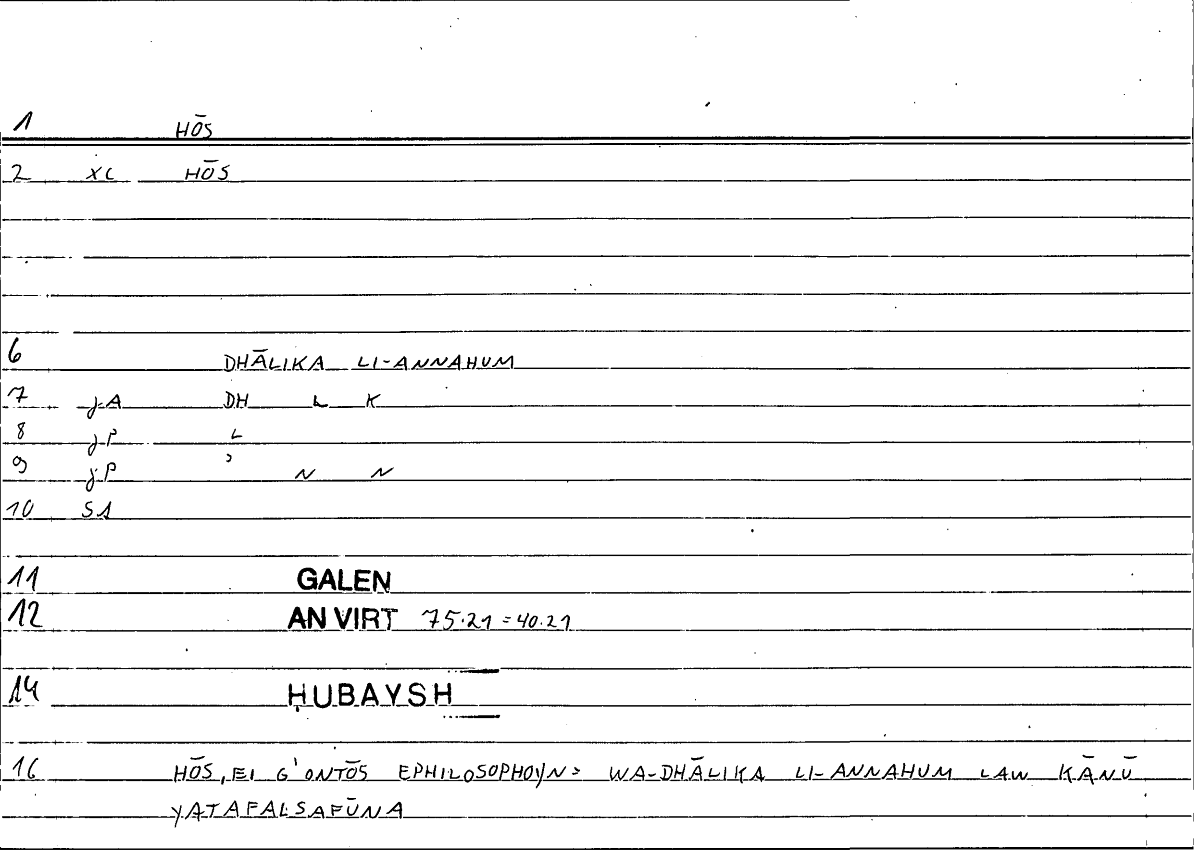 1 HŌS
2 XC HŌS
6 DHĀLIKA LI-ANNAHUM
7 jA DH L K
8 jP L
9 jP ʾ N N
10 SA
11 GALEN
12 AN VIRT 75.21 = 40.21
14 ḤUBAYSH
16 HŌS, EI G'ONTŌS EPHILOSOPHOYN> WA-DHĀLIKA LI-ANNAHUM LAW KĀNŪ
YATAFALSAFŪNA